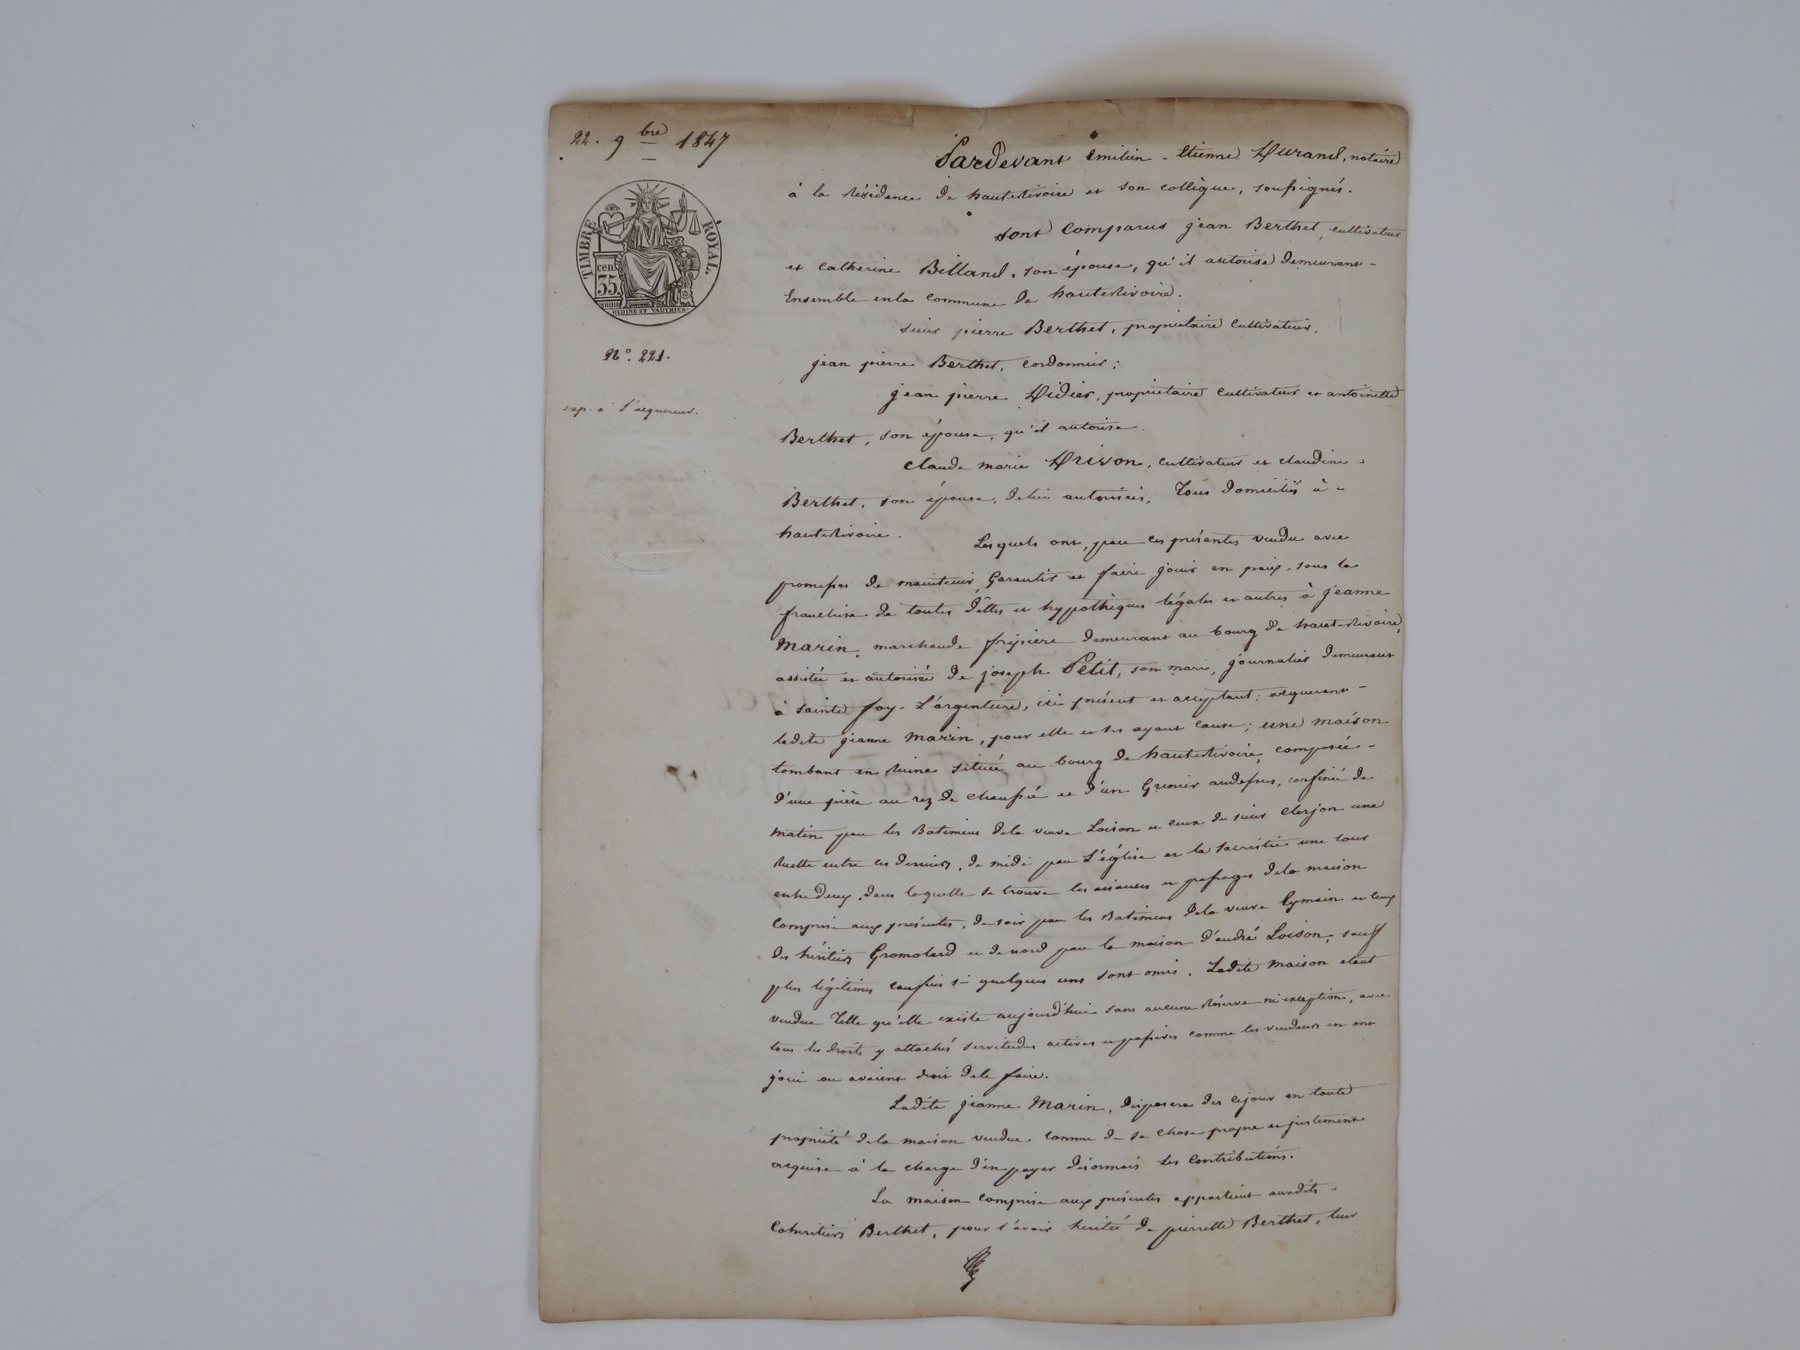 22. 9bre 1847
TIMBRE ROYAL.
cen.
35.
OUDINE ET VAUTHIER
N°. 221.
exp. a l'acquereur.
Pardevant Emilien-Etienne Durand, notaire
à la résidence de hauterivoire et son collègue, soussignés.
sont Comparus jean Berthet, cultivateur
et catherine Billand, son épouse, qu'il autorise demeurant-
Ensemble enla commune de hauterivoire.
sieur pierre Berthet, propriétaire Cultivateur,
jean pierre Berthet, cordonnier;
jean pierre Didier, propriétaire cultivateur et antoinette
Berthet, son épouse, qu'il autorise.
Claude marie Drivon, cultivateur et claudine
Berthet, son épouse, delui autorisée, Tous domiciliés à
hauterivoire.
Lesquels ont, par ces présentes vendu avec
promesses de maintenir, Garantir et faire jouir en paix, sous la
franchise de toutes dêttes et hypothèques légales et autres à jeanne
Marin, marchande fripière demeurant au bourg de hauterivoire,
assistée et autorisée de joseph Petit, son mari, journalier demeurant
à Sainte foy-L'argentière, ici présent et acceptant: acquerant-
ladite jeanne Marin, pour elle et ses ayant cause; une maison
tombant en ruine située au bourg de hauterivoire, composée-
d'une pièce au rez de chaussée et d'un Grenier audessus, confinée de
matin par les Batimens dela veuve Loison et ceux du sieur Clerjon une
ruelle entre ces derniers, de midi par l'église et la sacristie une cour
entredeux, dans laquelle se trouve les aisances et passages dela maison
Comprise aux présentes, de soir par les Batimens dela veuve Eymain et ceux
des héritiers Gromolard et de nord par la maison d'andré Loison, sauf
plus légitimes confins si quelques uns sont omis. Ladite Maison étant
vendue Telle qu'elle existe aujourd'hui sans aucune réserve ni exception, avec
tous les droits y attachés servitudes actives et passives comme les vendeurs en ont
joui ou avaient droit dele faire.
Ladite jeanne Marin, disposera dès cejour en toute
propriété dela maison vendue comme de sa chose propre et justement
acquise à la charge d'en payer désormais les Contributions.
La maison comprise aux présentes appartient auxdits-
Cohéritiers Berthet, pour l'avoir héritée de pierrette Berthet, leur